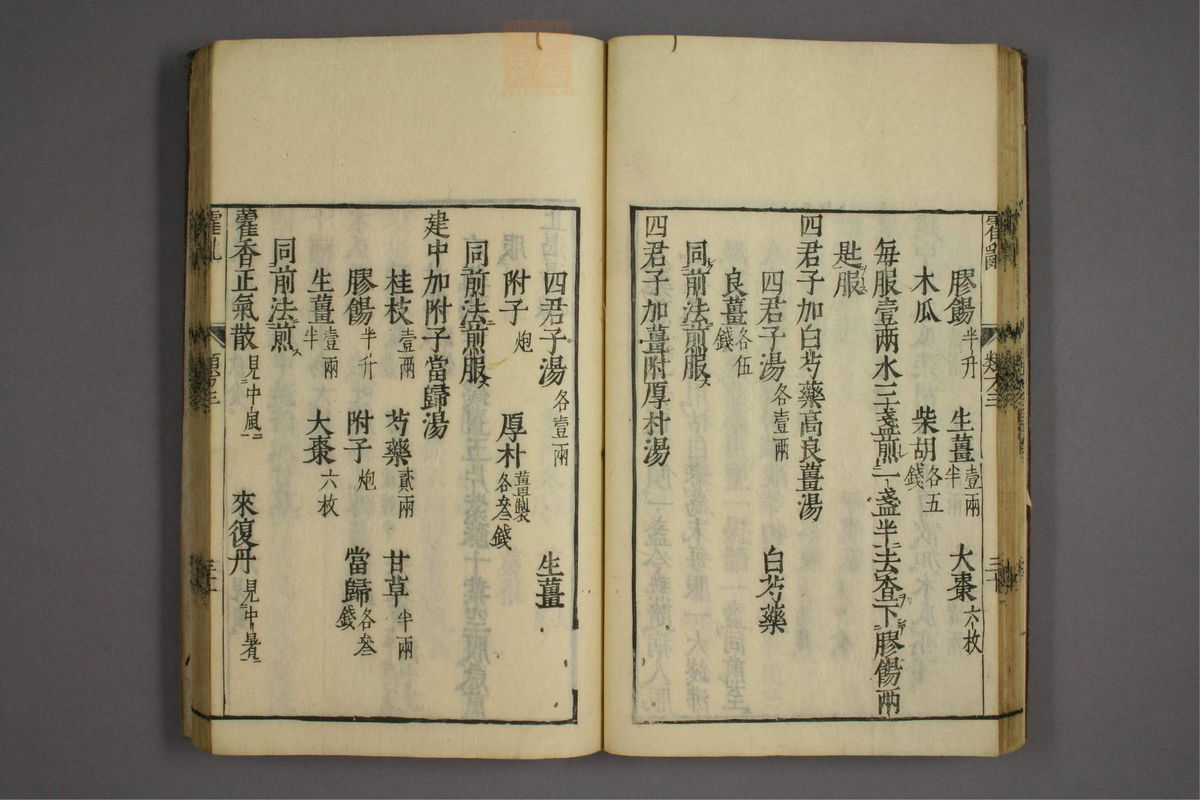 霍亂
膠餳半升 生薑壹兩半 大棗六枚
木瓜 柴胡各五錢
每服壹兩水三盞煎一盞半去查下膠餳兩
匙服
四君子加白芍藥高良薑湯
四君子湯各壹兩 白芍藥
良薑各伍錢
同前法煎服
四君子加薑附厚朴湯
四君子湯各壹兩 生薑
附子炮 厚朴薑製各叁錢
同前法煎服
建中加附子當歸湯
桂枝壹兩 芍藥貳兩 甘草半兩
膠餳半升 附子炮 當歸各叁錢
生薑壹兩半 大棗六枚
同前法煎
藿香正氣散見中風 來復丹見中暑
霍乱